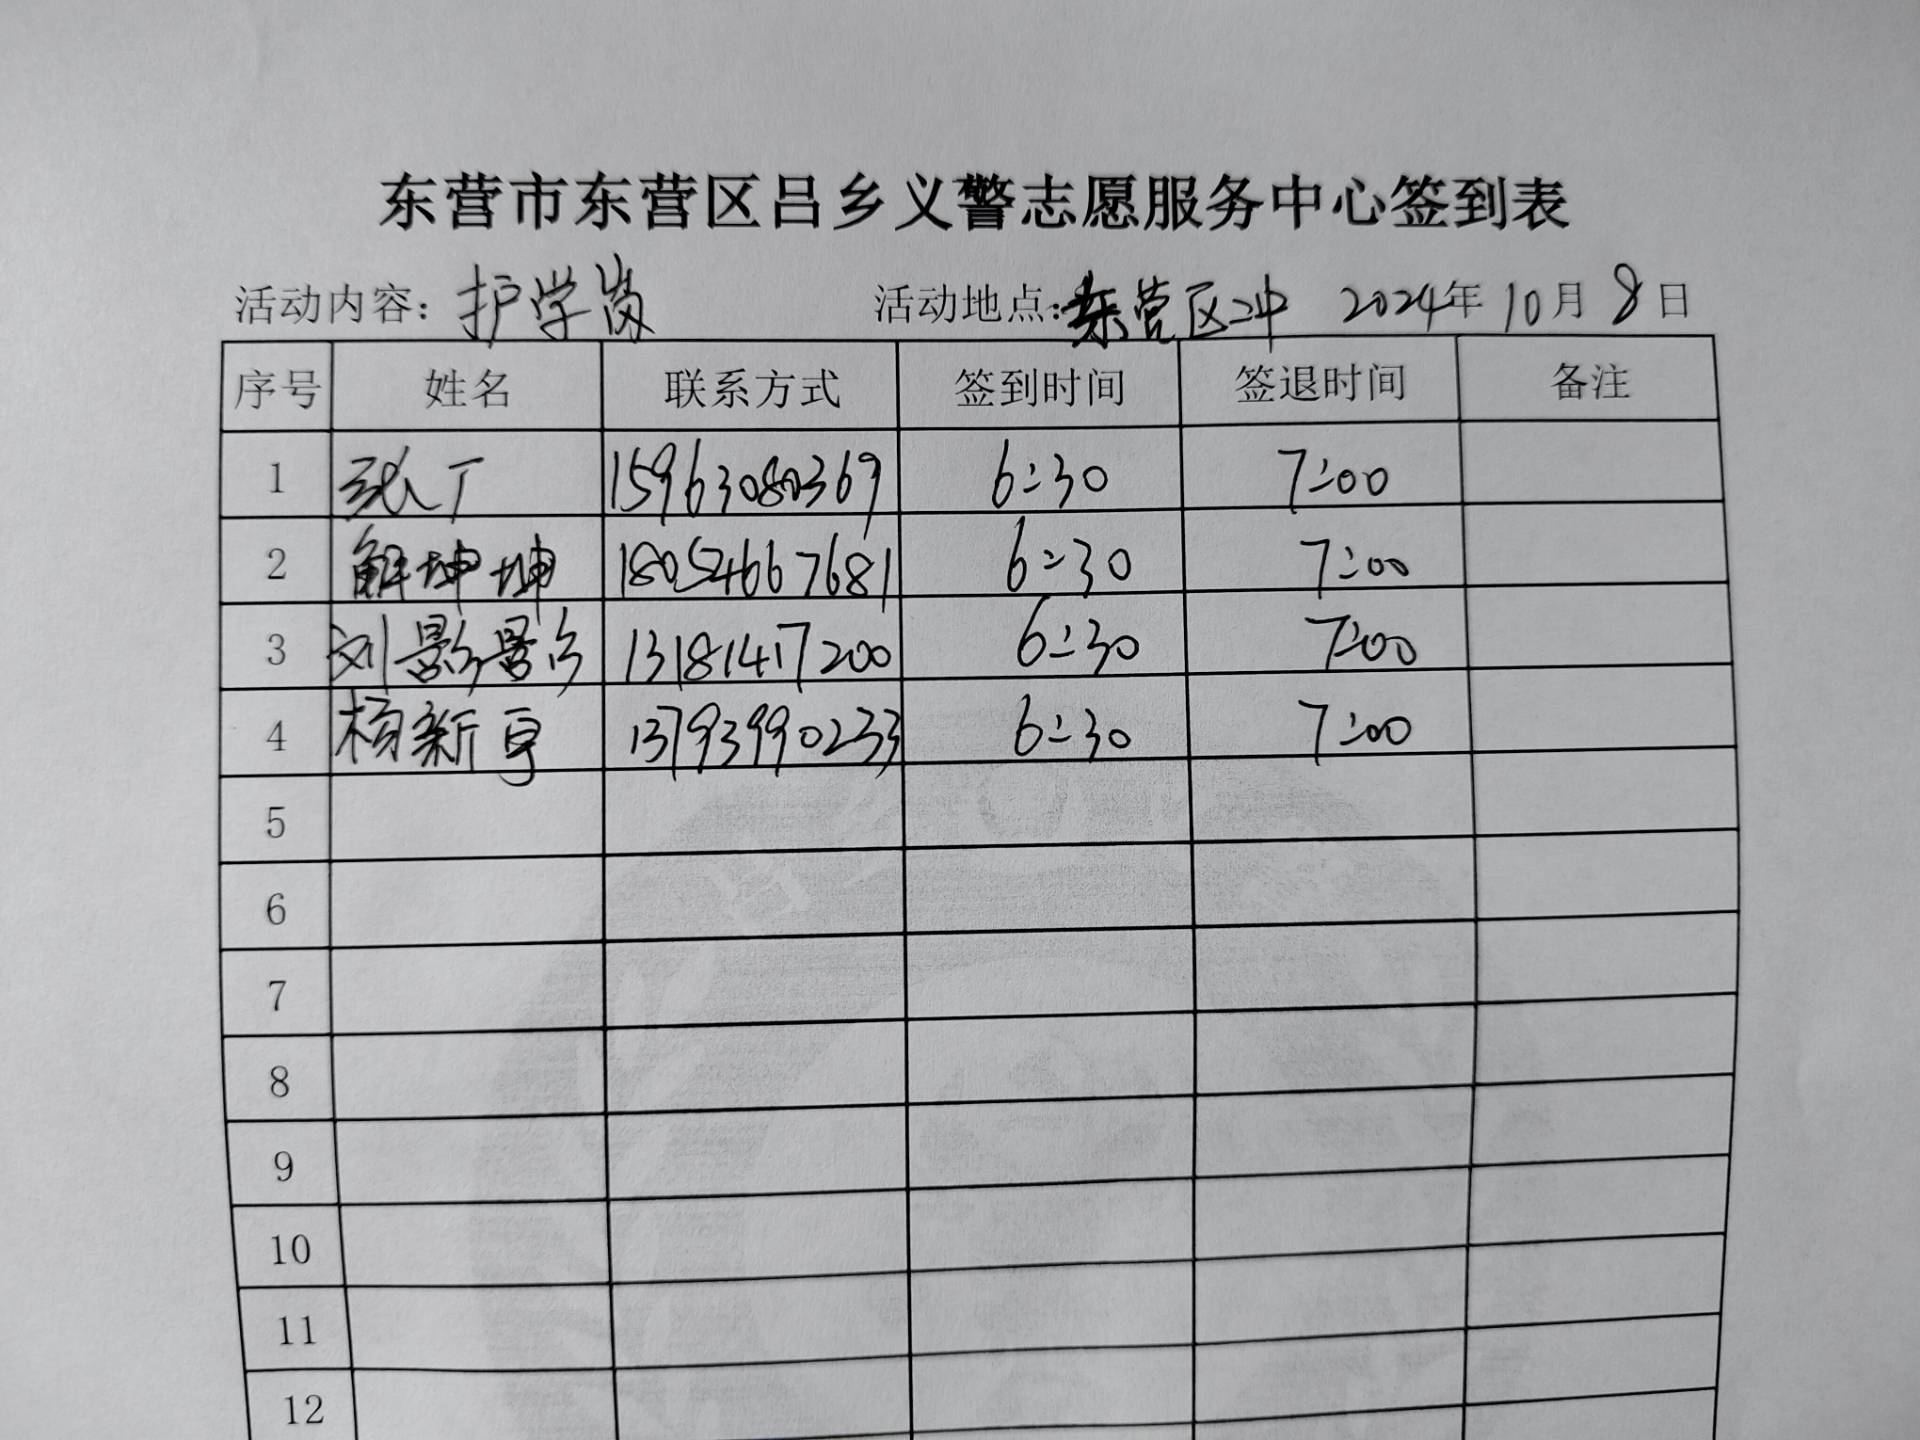 东营市东营区吕乡义警志愿服务中心签到表
活动内容：护学岗 活动地点：东营区二中 2024年10月8日
序号 姓名 联系方式 签到时间 签退时间 备注
1 张丁 15963080369 6:30 7:00
2 解坤坤 18054667681 6:30 7:00
3 刘影影 13181417200 6:30 7:00
4 杨新宇 13793990233 6:30 7:00
5
6
7
8
9
10
11
12